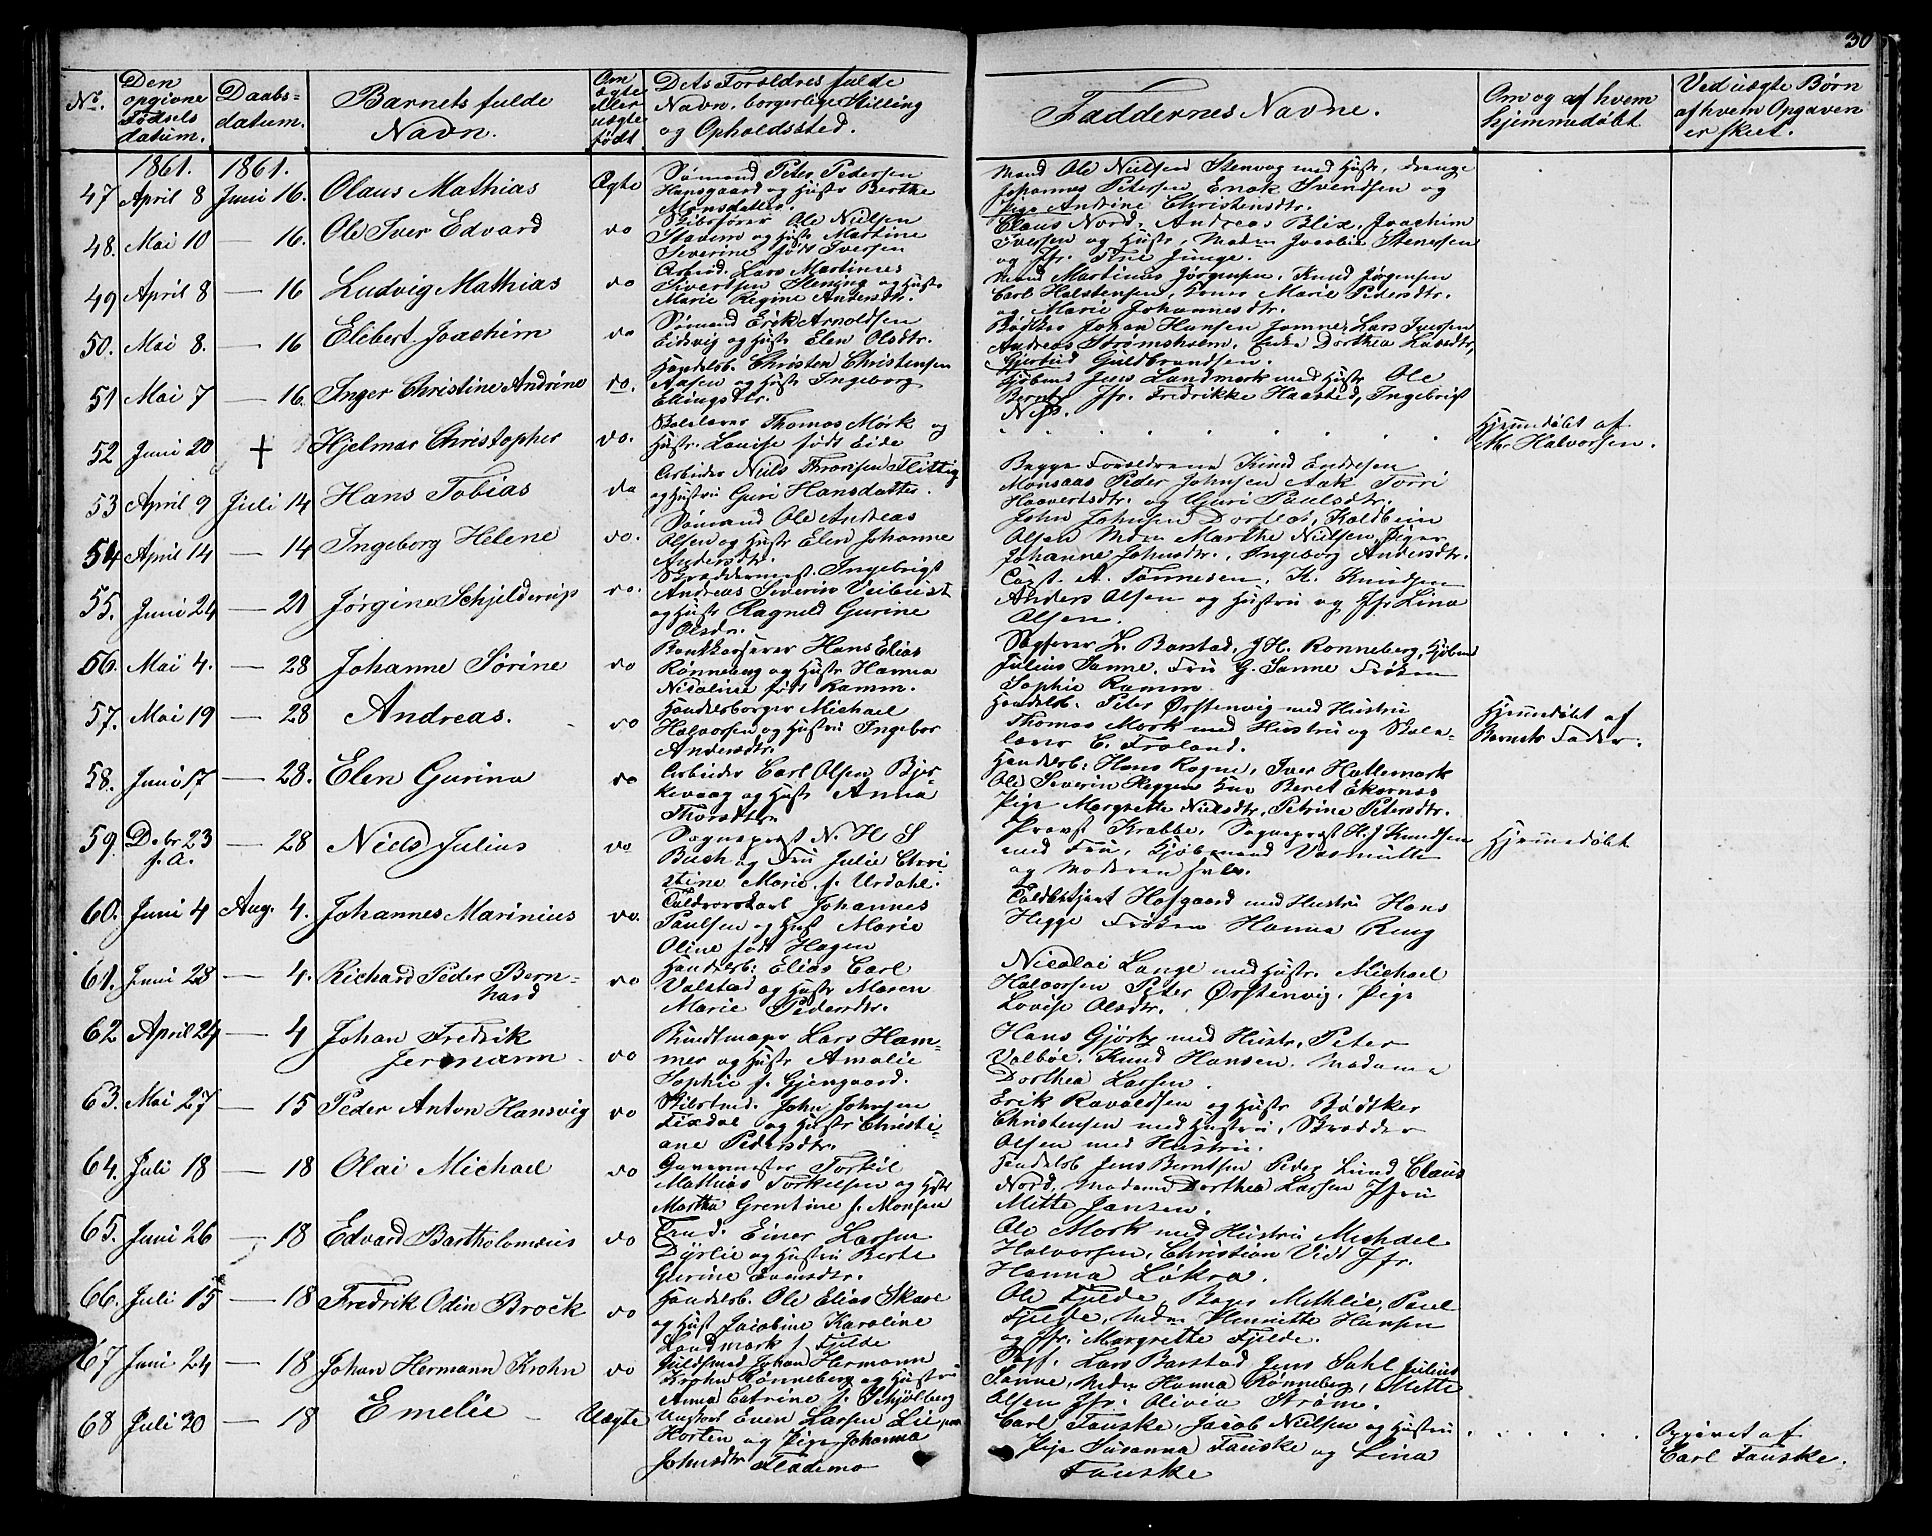 30
No.
Den opgivne Fødsels datum.
Daabs-datum.
Barnets fulde Navn.
Om ægte eller uægte født
Dets Forældres fulde Navn, borgerlige Stilling og Opholdssted.
Faddernes Navne.
Om og af hvem hjemmedøbt
Ved uægte Børn af hvem Opgaven er skeet.
1861. 1861.
47 April 8 Juni 16. Olaus Mathias Ægte
Sømand Peter Pedersen
Hansgaard og Hustr Berthe
Monsdatter.
Mand Ole Nielsen Stenvog med Hustr, Drenge
Johannes Petersen, Enok Svendsen og
Pige Andrine Christensdtr.
48. Mai 10 — 16. Ole Iver Edvard do
Ole Nielsen
Stavem og Hustr Martine
Severine født Iversen
Claus Nord, Andreas Blix, Joachim
Iversen og Hustr, Madm Jacobia Stenersen
og Jfr. Trine Junge.
49 April 8 — 16 Ludvig Mathias do
Arbeid. Lars Martinius
Sivertsen Stening og Hustr
Marie Regine Andersdtr.
Mand Martinus Jørgensen, Knud Jørgensen
Carl Halstensen, Koner Marie Pedersdtr.
og Marie Johannesdtr.
50. Mai 8. — 16 Elibert Joachim do
Sømand Erik Arnoldsen
Eidsvig og Hustr Elen Olsdtr.
Bødker Johan Hansen Jomne, Lars Iversen
Andreas Strømsholm, Enke Dorthea Larsdtr,
Gjertrud Guldbrandsen.
51 Mai 7 — 16. Inger Christine Andrine do.
Handelsb. Christen Christensen
Aasen og Hustr Ingeborg
Ellingsdtr.
Kjøbmd Jens Landmark med Hustr Ole
Berntz Jfr. Fredrikke Haasted, Ingebrigt
52 Juni 20 + Hjelmar Christopher do.
Thomas Mork og
Hustr. Louise født Eide
Hjemmdøbt af
Mr Halvorsen.
53 April 9 Juli 14 Hans Tobias do
Arbeider Niels Thronsen Flittig
og Hustru Guri Hansdatter.
Begge Forældrene Knud Endresen
Monsaas Peder Johnsen Aak Torri
Haavertsdtr. og Guri Paulsdtr.
54 April 14 — 14 Ingeborg Helene do.
Sømand Ole Andreas
Olsen og Hustr Elen Johanne
Andersdtr.
John Johnsen Koldbein
Olsen Mdm Marthe Nielsen, Piger
Johanne Johnsdtr., Ingeborg Andersdtr.
55. Juni 24 — 21 Jørgine Schjelderup do.
Skræddermest. Ingebrigt
Andreas Severin Veibust
og Hustr Ragnild Gurine
Olsdtr.
Capt. A. Tønnesen, K. Knudsen
Anders Olsen og Hustru og Jfr Lina
Olsen.
56. Mai 4. — 28 Johanne Sørine do
Bankkasserer Hans Elias
Rønneberg og Hustr Hanna
Nicoline født Ramm.
Sagfører L. Barstad, J. H. Ronneberg, Kjøbmd
Julius Sanne, Fru G. Sanne Frøken
Sophie Ramm
57. Mai 19 — 28 Andreas. do
Handelsborger Michael
Halvorsen og Hustru Ingebor
Andersdtr.
Handelsb. Peter Ørstenvig med Hustru
Thomas Mork med Hustru og Skole-
lærer C. Froland.
Hjemmdøbt af
Barnets Fader.
58. Juni 17 — 28. Elen Gurina do
Arbeider Carl Olsen Bjer-
kevaag og Hustr Anna
Thorsdtr.
Handelsb: Hans Rogne, Iver Hattemark
Ole Severin Heggen Kone Beret Ekornes
Pige Margrethe Nielsdtr, Petrine Petersdtr.
59. Debr 23 f. A. — 28 Niels Julius do
Sogneprest N. H. S
Buch og Fru Julie Chri-
stine Marie f. Urdahl.
Provst Krabbe, Sogneprest H. J Knudsen
med Fru, Kjøbmand
og Moderen selv.
Hjemmedøbt
60. Juni 4 Aug. 4. Johannes Marinius do.
Toldroerskarl Johannes
Paulsen og Hust Marie
Oline født Hagen
Hofgaard med Hustru Hans
Hegge Frøken Hanna Ring
61. Juni 28 — 4. Richard Peder Bern-
hard do
Handelsb: Elias Carl
Valstad og Hustr Maren
Marie Pedersdtr.
Nicolai Lange med Hustr. Michael
Halvorsen Peter Ørstenvig, Pige
Lovise Olsdtr.
62 April 24 — 4 Johan Fredrik
Jermann do
Bundtmager Lars Ham-
mer og Hustr Amalie
Sophie f. Gjengaard.
Hans Gjørtz med Hustr, Peter
Valbøe, Knud Hansen, Madame
Dorthea Larsen.
63. Mai 27 — 15 Peder Anton Hansvig do
John Johnsen
Fixdal og Hustr Christi-
ane Pedersdtr.
Erik Ravaldsen og Hustr Bødtker
Christensen med Hustru, Skrædder
Olsen med Hustru.
64. Juli 18 — 18 Olai Michael do
Garvermester Torkil
Mathias Torkilsen og Hustr
Martha Grentine f. Monsen
Handelsb Jens Berntsen Peder Lund Claus
Nord, Madame Dorthea Larsen Jfru
Mitte Jansen.
65. Juni 26 — 18 Edvard Bartholomeus do
Einer Larsen
Dyrlie og Hustru Berte
Gurine Evensdtr.
Ole Mork med Hustru Michael
Halvorsen, Christian Vidt Jfr.
Hanna Løkra.
66. Juli 15 — 18 Fredrik Odin Brock do
Handelsb. Ole Elias Skare
og Hust Jacobine Karoline
Landmark f Fjelde
Ole Fjelde, Bager Methlie, Paul
Fjelde, Mdm Henriette Hansen
og Jfr. Margrette Fjelde.
67 Juni 24 — 18 Johan Hermann Krohn do
Guldsmed Johan Hermann
Krohn Rønneberg og Hustru
Anna Catrine f. Schjølberg
Sagf. Lars Barstad Jens Dahl Julius
Sanne, Mdm Hanna Rønneberg, Mette
Olsen Jfr. Olivia Strøm.
68 Juli 30 — 18 Emelie Uægte
Ungkarl Even Larsen Lie, paa
Horten og Pige Johanna
Johnsdtr Flademo
Carl Fauske, Jacob Nielsen og Hustru
Pige Susanna Fauske og Lina
Fauske
Opgivet af
Carl Fauske.